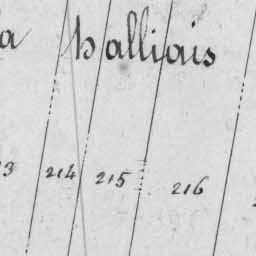 a halliais
3 214 215 216